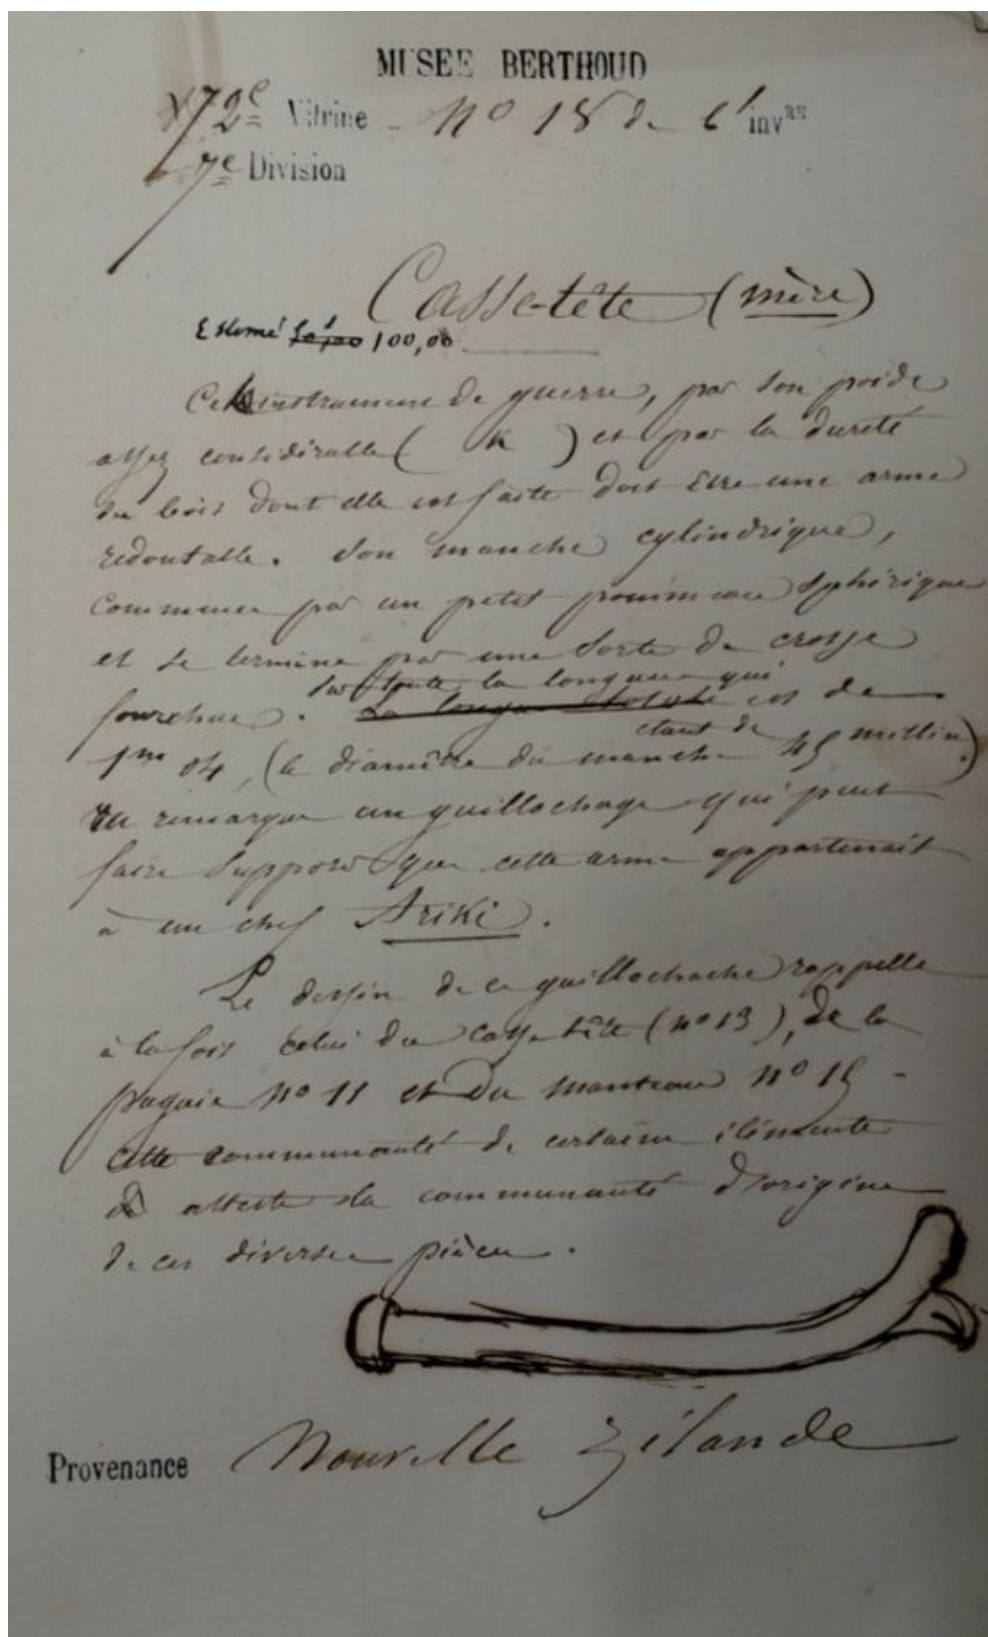 MUSEE BERTHOUD
72e Vitrine - No 18 de l' invre
7e Division
Casse-tête (mère)
Estimé 50,00 100,00
Cet instrument de guerre, par son poids
assez considérable ( K ) et par la dureté
du bois dont elle est faite doit être une arme
redoutable. Son manche cylindrique,
commence par un petit pommeau sphérique
et se termine par une sorte de crosse
sur toute la longueur qui
fourchue. La longueur totale est de
étant de
1m 04, (le diamètre du manche 45 millim.)
on remarque un guillochage qui peut
faire supposer que cette arme appartenait
à un chef Ariki.
Le dessin de ce guillochache rappelle
à la fois celui du casse tête (no 13), de la
pagaie no 11 et du manteau no 15 -
cette communauté de certains éléments
atteste la communauté d'origine
de ces diverses pièces.
Provenance Nouvelle Zélande